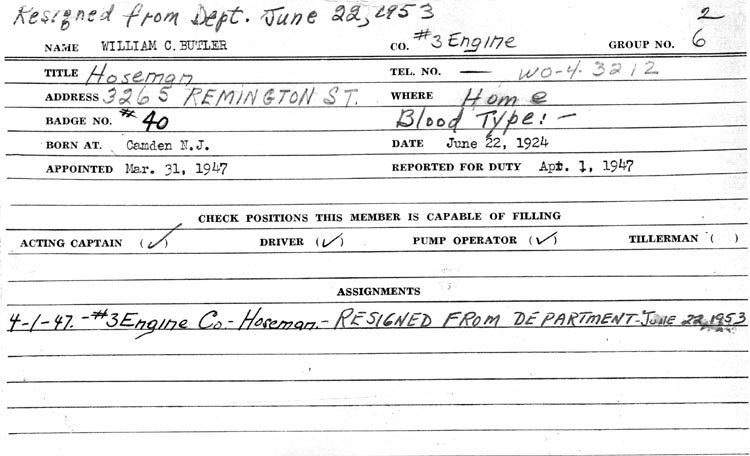 Resigned from Dept. June 22, 1953
2
NAME WILLIAM C. BUTLER CO. #3 Engine GROUP NO. 6
TITLE Hoseman TEL. NO. — WO-4-3212
ADDRESS 3265 REMINGTON ST. WHERE Home
BADGE NO. #40 Blood Type:-
BORN AT. Camden N.J. DATE June 22, 1924
APPOINTED Mar. 31, 1947 REPORTED FOR DUTY Apt. 1, 1947
CHECK POSITIONS THIS MEMBER IS CAPABLE OF FILLING
ACTING CAPTAIN (✓) DRIVER (✓) PUMP OPERATOR (✓) TILLERMAN ( )
ASSIGNMENTS
4-1-47.-#3 Engine Co.- Hoseman.- RESIGNED FROM DEPARTMENT- JUNE 22, 1953